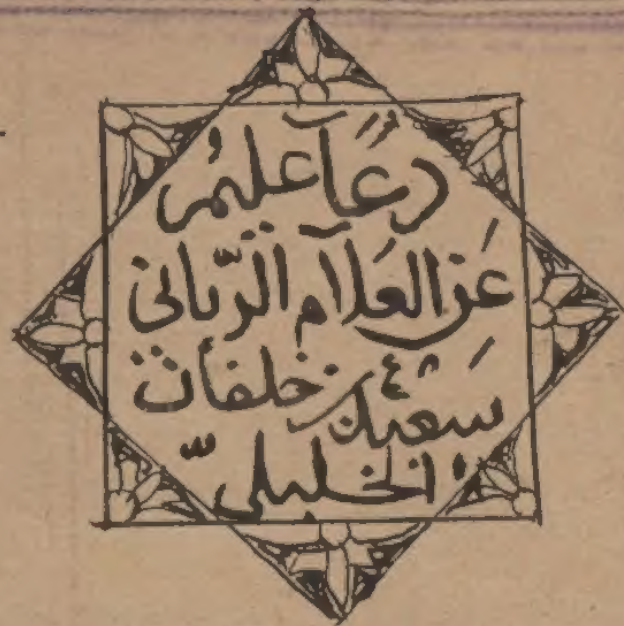 دُعَآ عليم
عَن العَلآم الرّباني
سَعيد بن خلفان
الخليلي